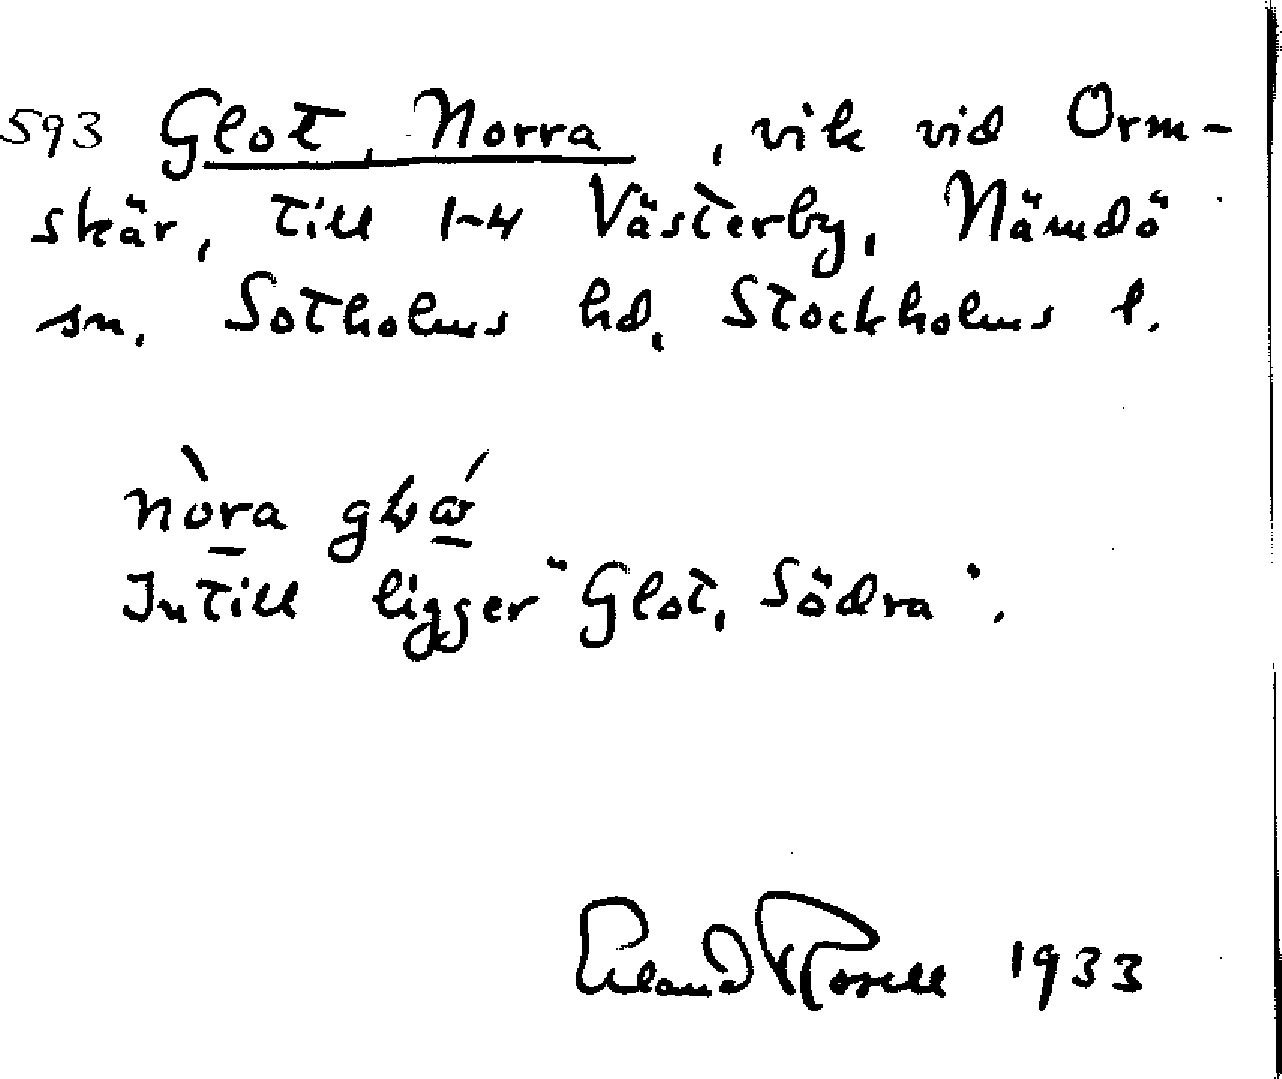 593 Glot, Norra, vik vid Orm-
skär, till 1-4 Västerby, Nämdö
sn. Sotholms hd. Stockholms l.
nòra
Intill ligger "Glot, Södra".
Erland Rosell 1933